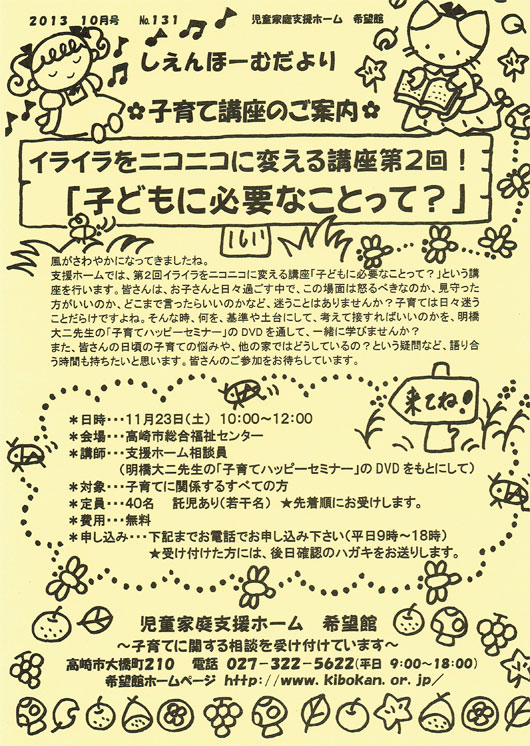 2013 10月号 No.131 児童家庭支援ホーム 希望館
しえんほーむだより
✿子育て講座のご案内✿
イライラをニコニコに変える講座第2回！
「子どもに必要なことって？」
風がさわやかになってきましたね。
支援ホームでは、第2回イライラをニコニコに変える講座「子どもに必要なことって？」という講
座を行います。皆さんは、お子さんと日々過ごす中で、この場面は怒るべきなのか、見守った
方がいいのか、どこまで言ったらいいのかなど、迷うことはありませんか？子育ては日々迷う
ことだらけですよね。そんな時、何を、基準や土台にして、考えて接すればいいのかを、明橋
大二先生の「子育てハッピーセミナー」のDVDを通して、一緒に学びませんか？
また、皆さんの日頃の子育ての悩みや、他の家ではどうしているの？という疑問など、語り合
う時間も持ちたいと思います。皆さんのご参加をお待ちしています。
来てね！
＊日時・・・11月23日（土） 10:00～12:00
＊会場・・・高崎市総合福祉センター
＊講師・・・支援ホーム相談員
（明橋大二先生の「子育てハッピーセミナー」のDVDをもとにして）
＊対象・・・子育てに関係するすべての方
＊定員・・・40名 託児あり（若干名） ★先着順にお受けします。
＊費用・・・無料
＊申し込み・・・下記までお電話でお申し込み下さい（平日9時～18時）
★受け付けた方には、後日確認のハガキをお送りします。
児童家庭支援ホーム 希望館
～子育てに関する相談を受け付けています～
高崎市大橋町210 電話 027-322-5622（平日 9:00～18:00）
希望館ホームページ http://www.kibokan.or.jp/